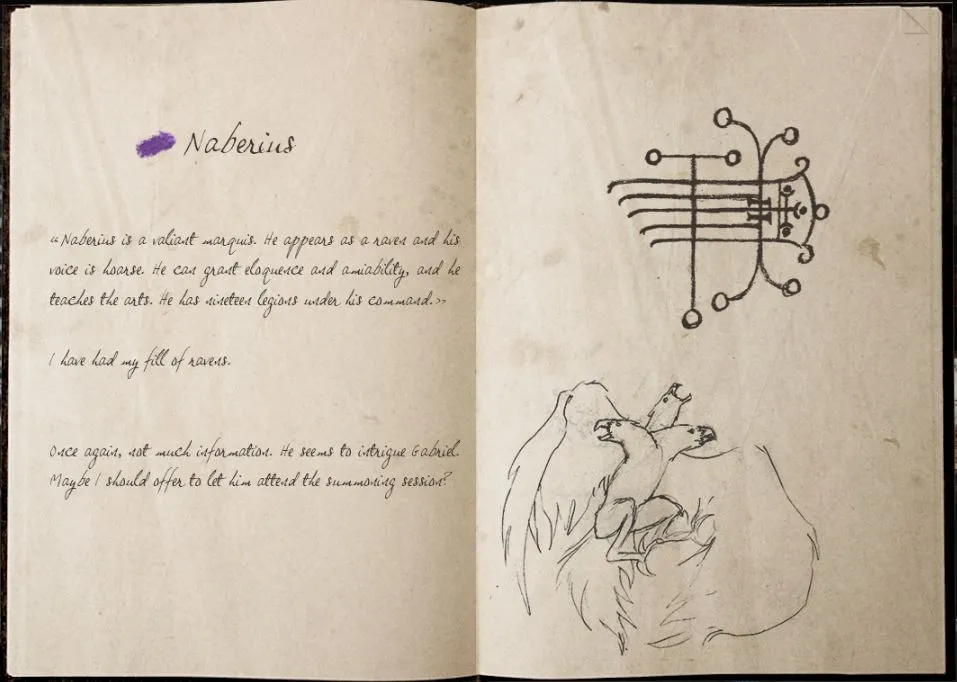 Naberius
«Naberius is a valiant marquis. He appears as a raven and his
voice is hoarse. He can grant eloquence and amiability, and he
teaches the arts. He has nineteen legions under his command.»
I have had my fill of ravens.
Once again, not much information. He seems to intrigue Gabriel.
Maybe I should offer to let him attend the summoning session?